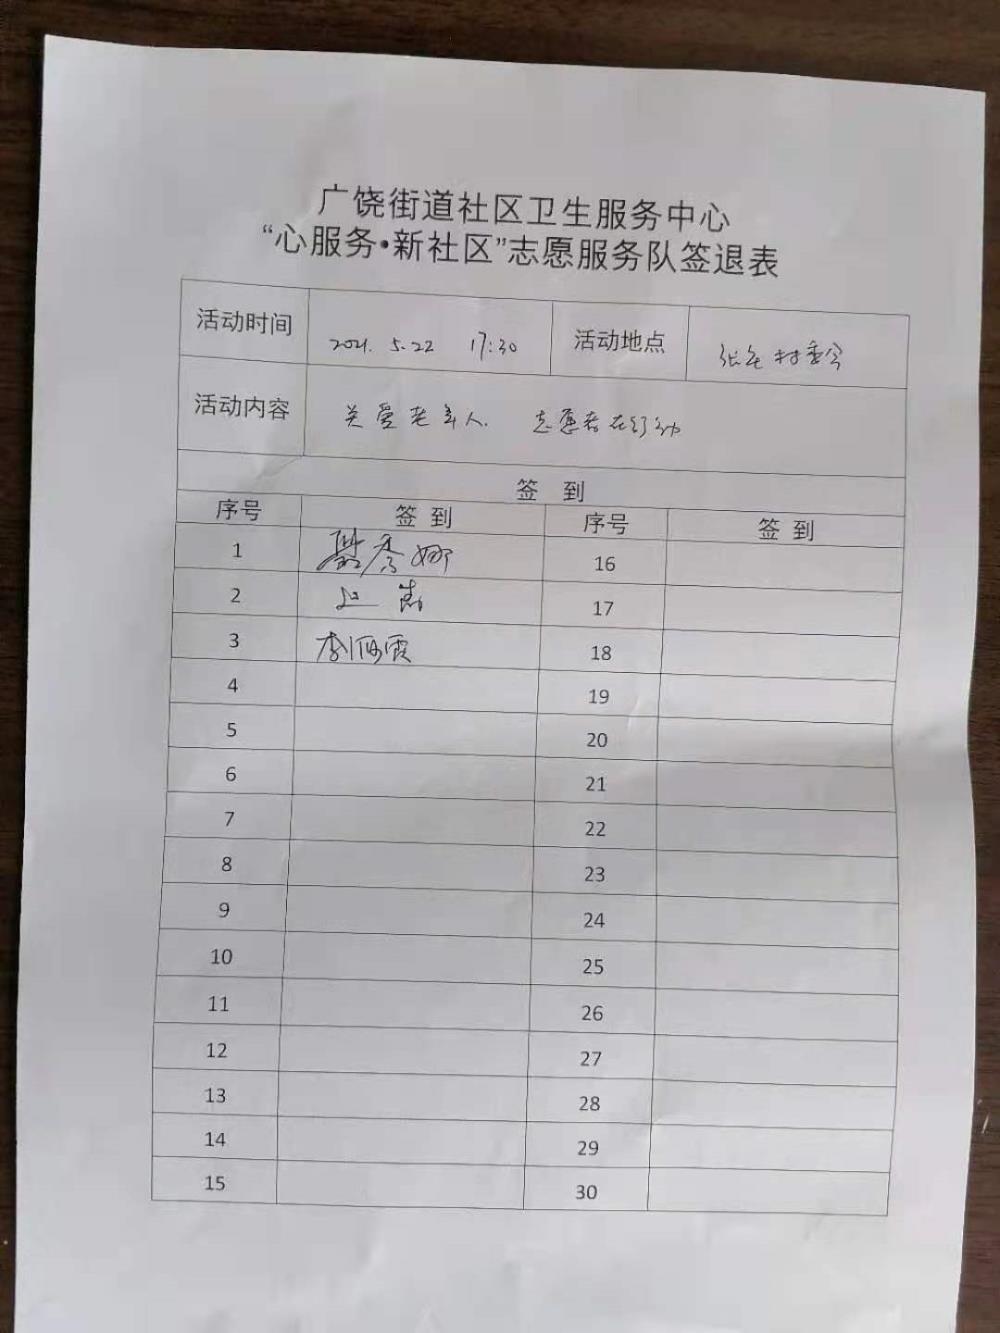 广饶街道社区卫生服务中心
“心服务•新社区”志愿服务队签退表
活动时间 2021. 5.22 17:30 活动地点 张庄村委会
活动内容 关爱老年人. 志愿者在行动
签 到
序号 签 到 序号 签 到
1 秀娜 16
2 17
3 李丽霞 18
4 19
5 20
6 21
7 22
8 23
9 24
10 25
11 26
12 27
13 28
14 29
15 30